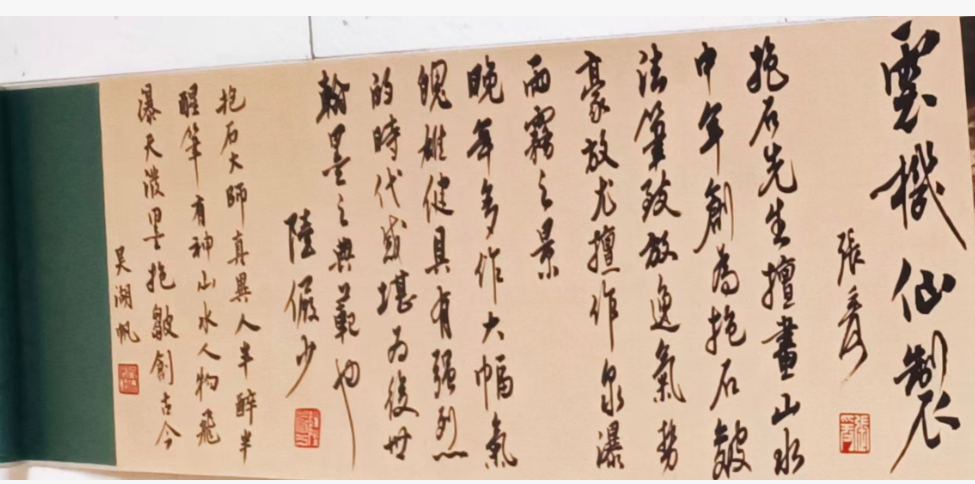 雲機仙製
張爰
抱石先生擅畫山水
中年創為抱石皴
法筆致放逸氣勢
豪放尤擅作泉瀑
雨霧之景
晚年多作大幅氣
魄雄健具有强烈
的時代感堪为後世
翰墨之典範也
陸儼少
抱石大師真異人半醉半
醒筆有神山水人物飛
瀑天潑墨抱皴創古今
吴湖帆